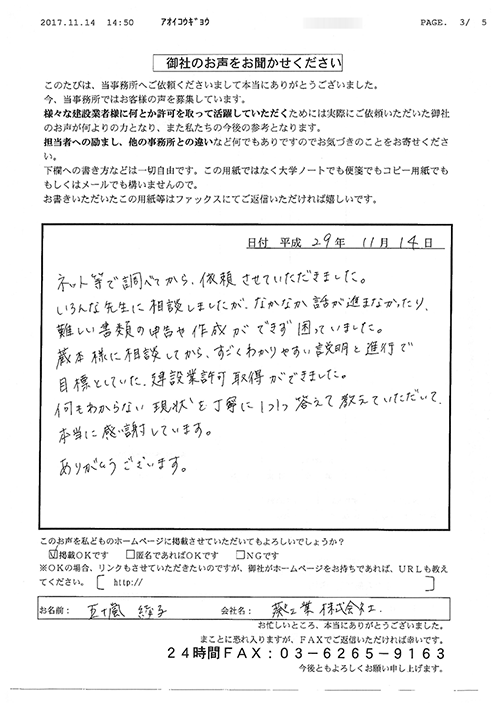 2017.11.14 14:50 ｱｵｲｺｳｷﾞｮｳ PAGE. 3/ 5
御社のお声をお聞かせください
このたびは、当事務所へご依頼くださいまして本当にありがとうございました。
今、当事務所ではお客様の声を募集しています。
様々な建設業者様に何とか許可を取って活躍していただくためには実際にご依頼いただいた御社
のお声が何よりの力となり、また私たちの今後の参考となります。
担当者への励まし、他の事務所との違いなど何でもありですのでお気づきのことをお寄せくださ
い。
下欄への書き方などは一切自由です。この用紙ではなく大学ノートでも便箋でもコピー用紙でも
もしくはメールでも構いませんので。
お書きいただいたこの用紙等はファックスにてご返信いただければ嬉しいです。
日付 平成 29年 11月 14日
ネット等で調べてから、依頼させていただきました。
いろんな先生に相談しましたが、なかなか話が進まなかったり、
難しい書類の申告や作成ができず困っていました。
蔵本様に相談してから、すごくわかりやすい説明と進行で
目標としていた、建設業許可取得ができました。
何もわからない現状を丁寧に1つ1つ答えて教えていただいて、
本当に感謝しています。
ありがとうございます。
このお声を私どものホームページに掲載させていただいてもよろしいでしょうか？
☑掲載OKです □匿名であればOKです □NGです
※OKの場合、リンクもさせていただきたいのですが、御社がホームページをお持ちであれば、URLも教え
てください。 [ http:// ]
お名前： 五十嵐 綾子 会社名： 葵工業 株式会社
お忙しいところ、本当にありがとうございました。
まことに恐れ入りますが、FAXでご返信いただければ幸いです。
24時間FAX：03-6265-9163
今後ともよろしくお願い申し上げます。